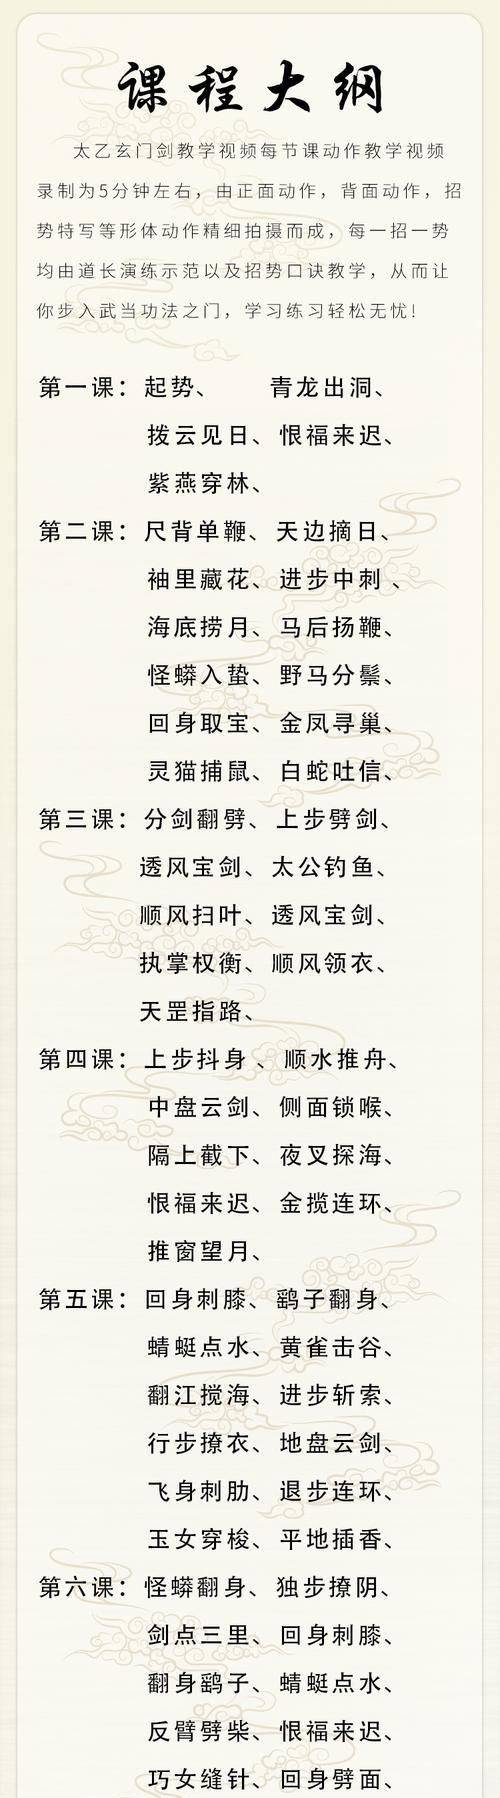 课程大纲
太乙玄门剑教学视频每节课动作教学视频
录制为5分钟左右，由正面动作，背面动作，招
势特写等形体动作精细拍摄而成，每一招一势
均由道长演练示范以及招势口诀教学，从而让
你步入武当功法之门，学习练习轻松无忧!
第一课：起势、 青龙出洞、
拨云见日、恨福来迟、
紫燕穿林、
第二课：尺背单鞭、天边摘日、
袖里藏花、进步中刺、
海底捞月、马后扬鞭、
怪蟒入蛰、野马分鬃、
回身取宝、金凤寻巢、
灵猫捕鼠、白蛇吐信、
第三课：分剑翻劈、上步劈剑、
透风宝剑、太公钓鱼、
顺风扫叶、透风宝剑、
执掌权衡、顺风领衣、
天罡指路、
第四课：上步抖身、顺水推舟、
中盘云剑、侧面锁喉、
隔上截下、夜叉探海、
恨福来迟、金揽连环、
推窗望月、
第五课：回身刺膝、鹞子翻身、
蜻蜓点水、黄雀击谷、
翻江搅海、进步斩索、
行步撩衣、地盘云剑、
飞身刺肋、退步连环、
玉女穿梭、平地插香、
第六课：怪蟒翻身、独步撩阴、
剑点三里、回身刺膝、
翻身鹞子、蜻蜓点水、
反臂劈柴、恨福来迟、
巧女缝针、回身劈面、